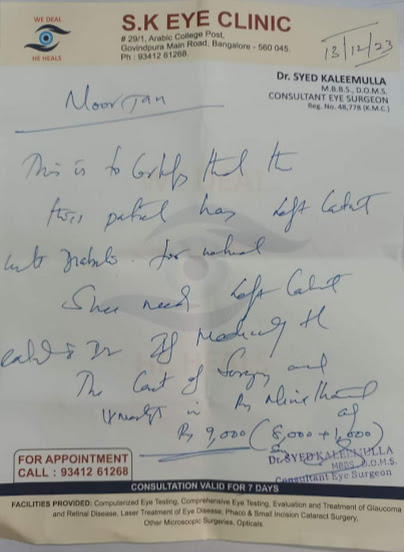 WE DEAL
HE HEALS
S.K EYE CLINIC
# 29/1, Arabic College Post,
Govindpura Main Road, Bangalore - 560 045.
Ph : 93412 61268.
13/12/23
Dr. SYED KALEEMULLA
M.B.B.S., D.O.M.S.
CONSULTANT EYE SURGEON
Reg. No. 48,778 (K.M.C.)
Noor Jan
This is to Certify that the
patient has Left
for
She need Left
The Cost of Surgery and
in Rs Nine
Rs 9,000 (8,000 + 1,000)
Dr. SYED KALEEMULLA
MBBS., D.O.M.S.
Consultant Eye Surgeon
FOR APPOINTMENT
CALL : 93412 61268
CONSULTATION VALID FOR 7 DAYS
FACILITIES PROVIDED: Computerized Eye Testing, Comprehensive Eye Testing, Evaluation and Treatment of Glaucoma
and Retinal Disease, Laser Treatment of Eye Disease, Phaco & Small Incision Cataract Surgery,
Other Microscopic Surgeries, Opticals.